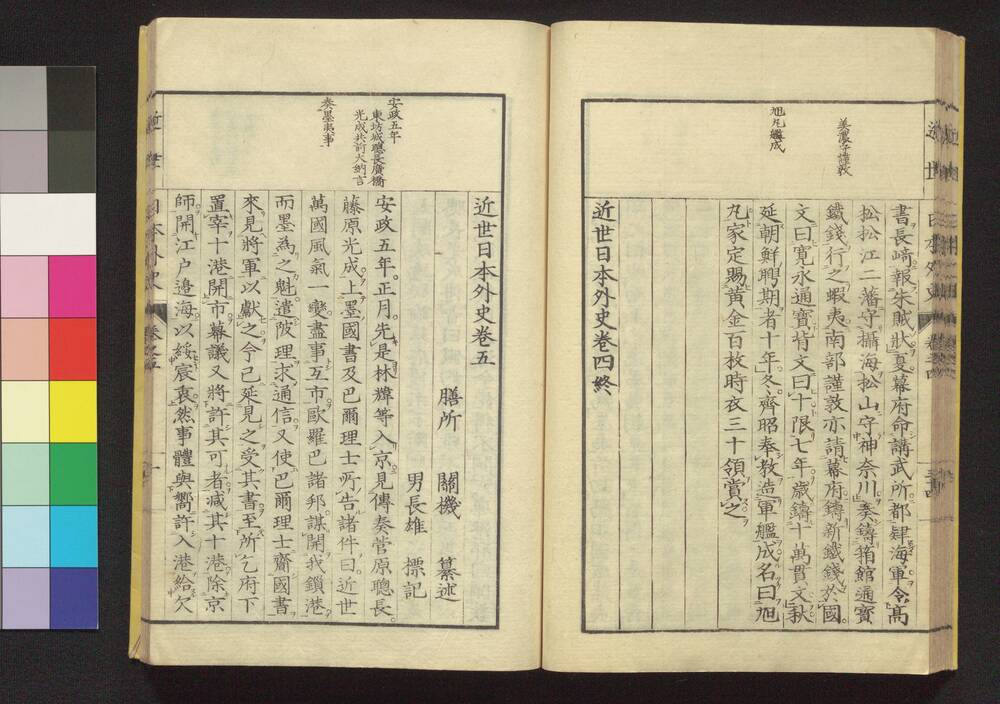 美濃守謹敦
旭丸艦成
書長崎報朱賊狀夏幕府命講武所都肄海軍令髙
松松江二藩守攝海松山守神奈川奏鑄箱館通寳
鐵錢行之蝦夷南部謹敦亦請幕府鑄新鐵錢於國
文曰寛永通寳背文曰十限七年歲鑄十萬貫文秋
延朝鮮聘期者十年冬齊昭奉敎造軍艦成名曰旭
丸家定賜黄金百枚時衣三十領賞之
近世日本外史巻四終
安政五年
東坊城聰長廣橋
光成共前大納言
奏墨夷事
近世日本外史巻五
膳所 關機 纂述
男長雄 標記
安政五年正月先是林韑等入京見傳奏菅原聰長
藤原光成上墨國書及巴爾理士所告諸件曰近世
萬國風氣一變盡事互市歐羅巴諸邦謀開我鎖港
而墨為之魁遣陂理求通信又使巴爾理士齎國書
來見將軍以獻之今已延見之受其書至所乞府下
置宰十港開市幕議又將許其可者减其十港除京
師開江户邉海以綏宸衷然事體與嚮許入港給欠